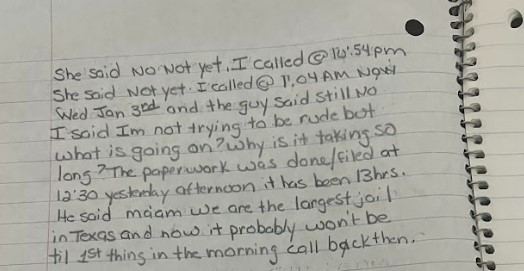 She said No Not yet. I called @ 10:54pm
She said Not yet. I called @ 1:04 AM Now
Wed Jan 3rd and the guy said still No
I said Im not trying to be rude but
what is going on? why is it taking so
long? The paperwork was done/filed at
12:30 yesterday afternoon it has been 13hrs.
He said ma'am we are the largest jail
in Texas and now it probably won't be
til 1st thing in the morning call back then.